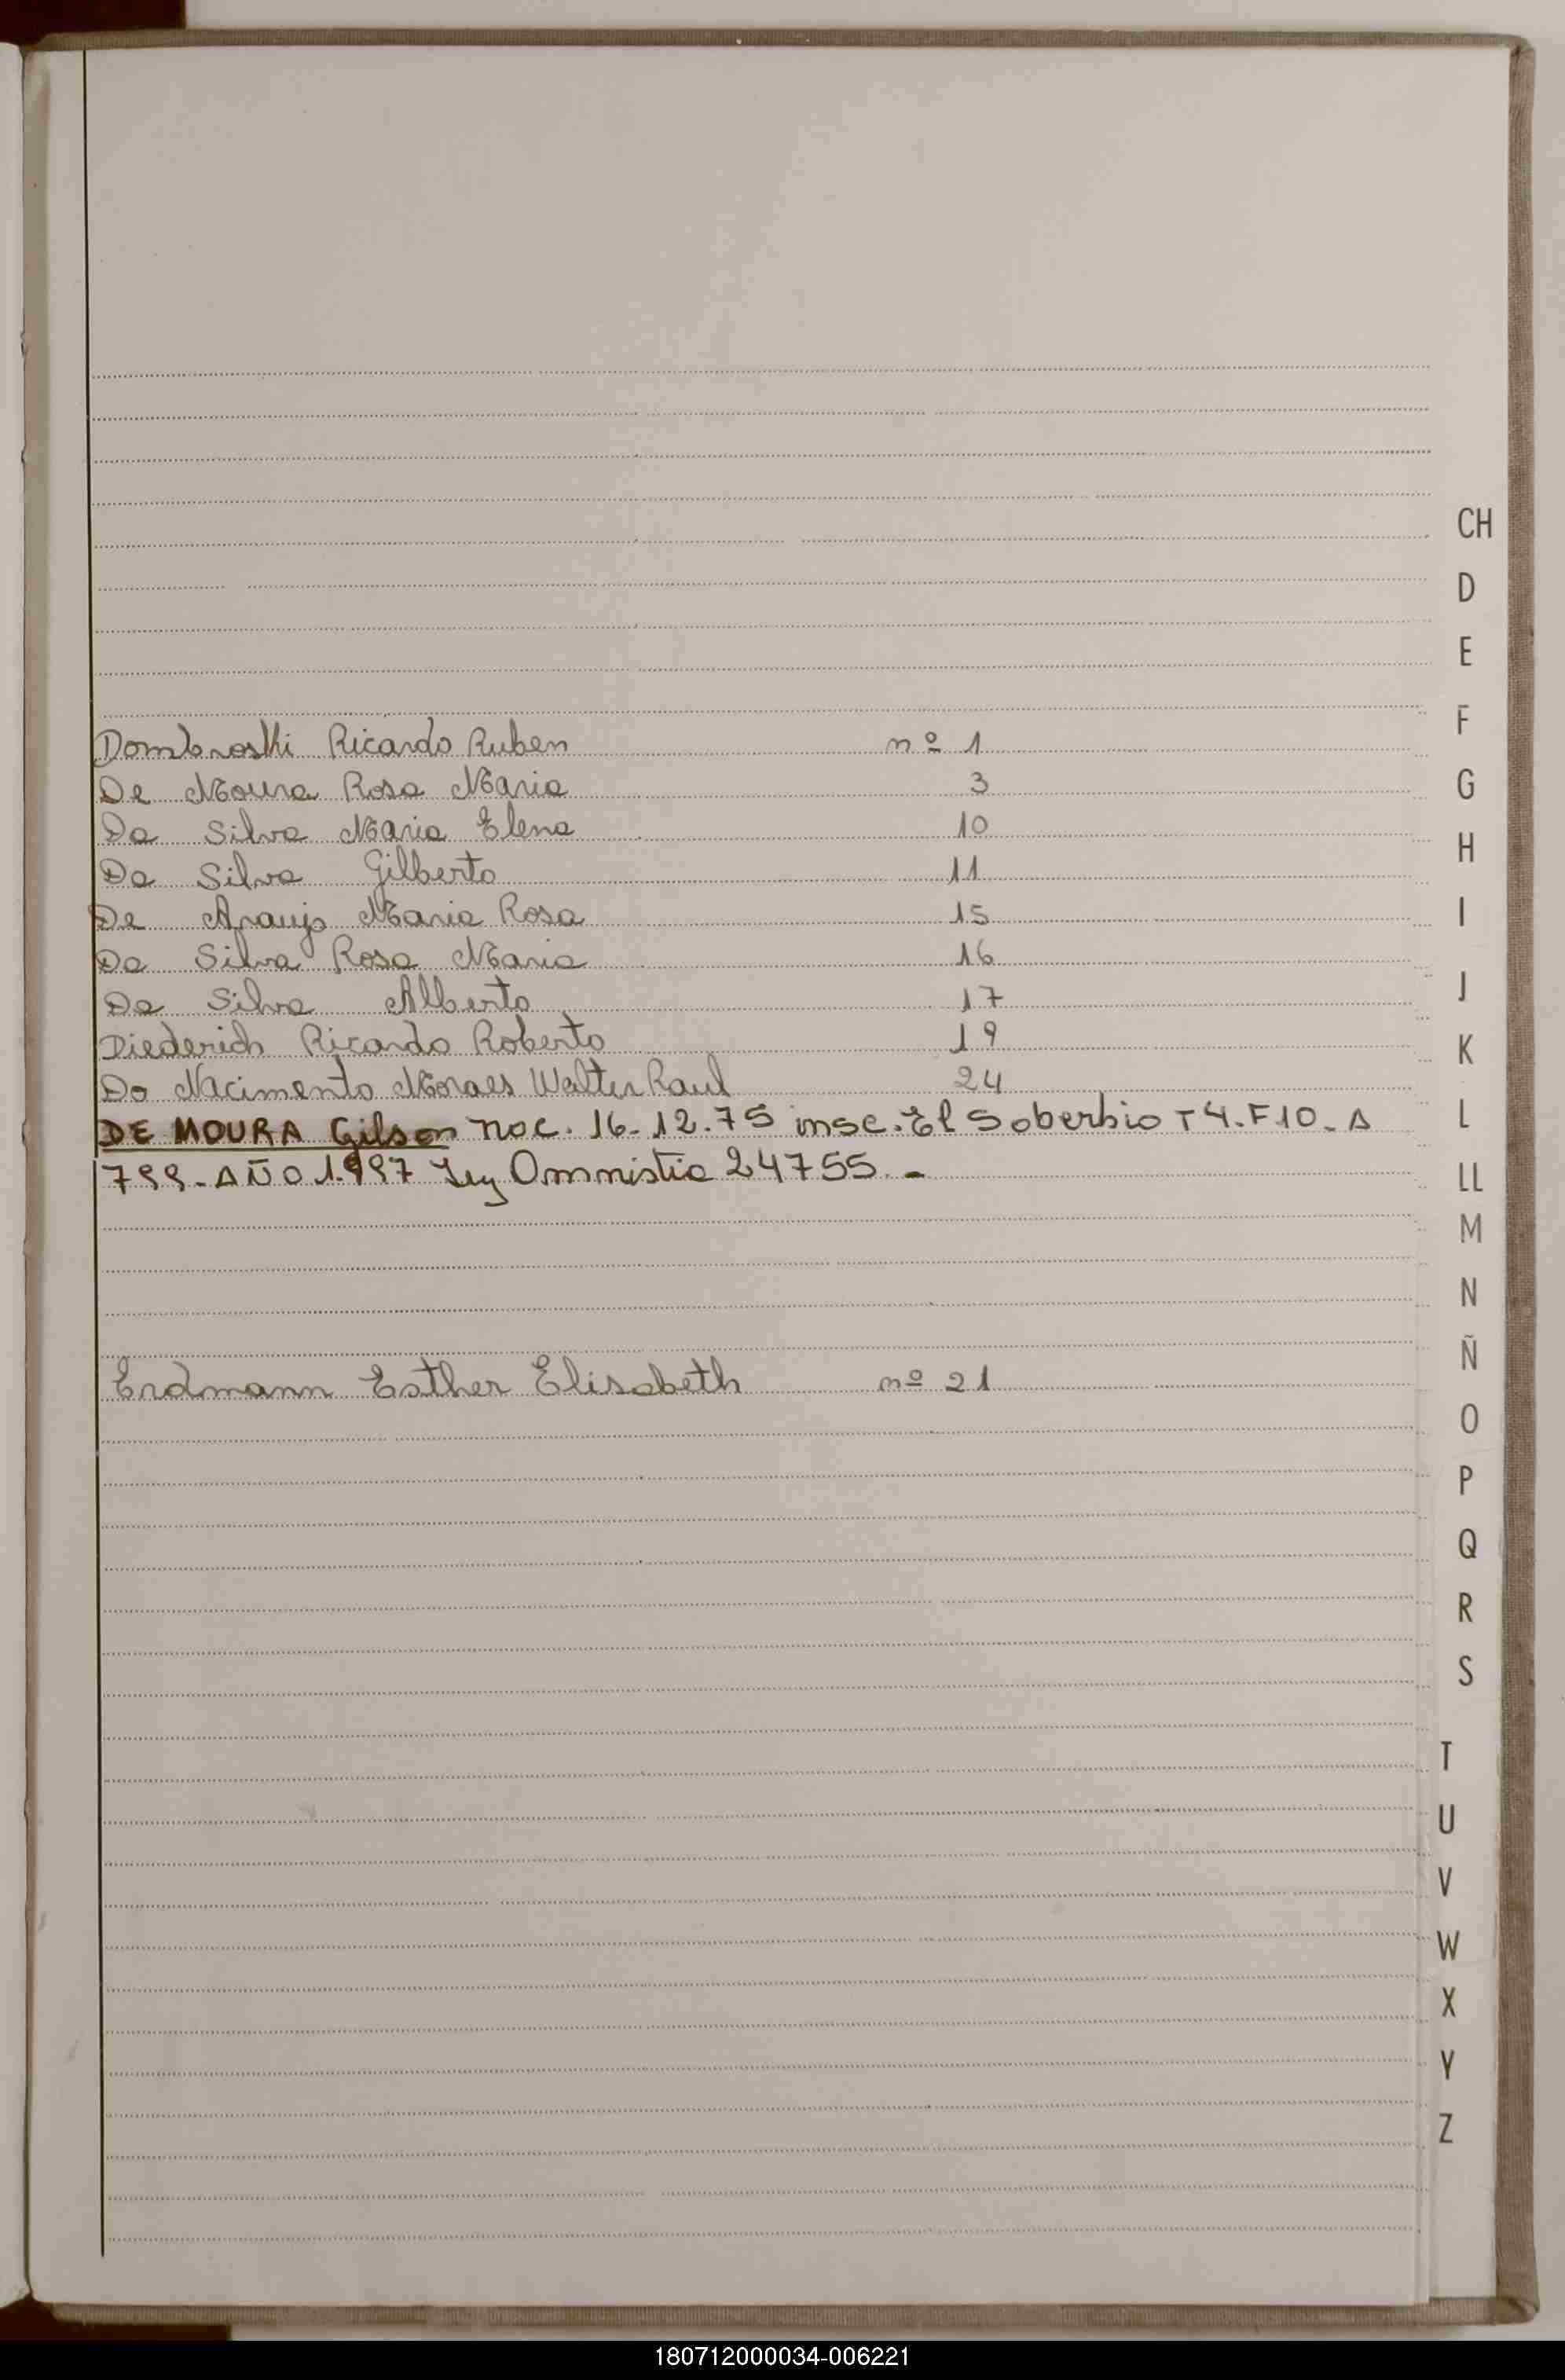 CH
D
E
F
Dombroski Ricardo Ruben nº 1
De Moura Rosa Maria 3
G
Da Silva Maria Elena 10
H
Da Silva Gilberto 11
De Araujo Maria Rosa 15
I
Da Silva Rosa Maria 16
Da Silva Alberto 17
J
Diederich Ricardo Roberto 19
K
Do Nacimento Moraes Walter Raul 24
DE MOURA Gilson nac. 16-12.75 insc. El Soberbio T4.F10-A
L
799-AÑO 1.997 Ley Omnistia 24755.-
LL
M
N
Ñ
Erdmann Esther Elisabeth nº 21
O
P
Q
R
S
T
U
V
W
X
Y
Z
180712000034-006221